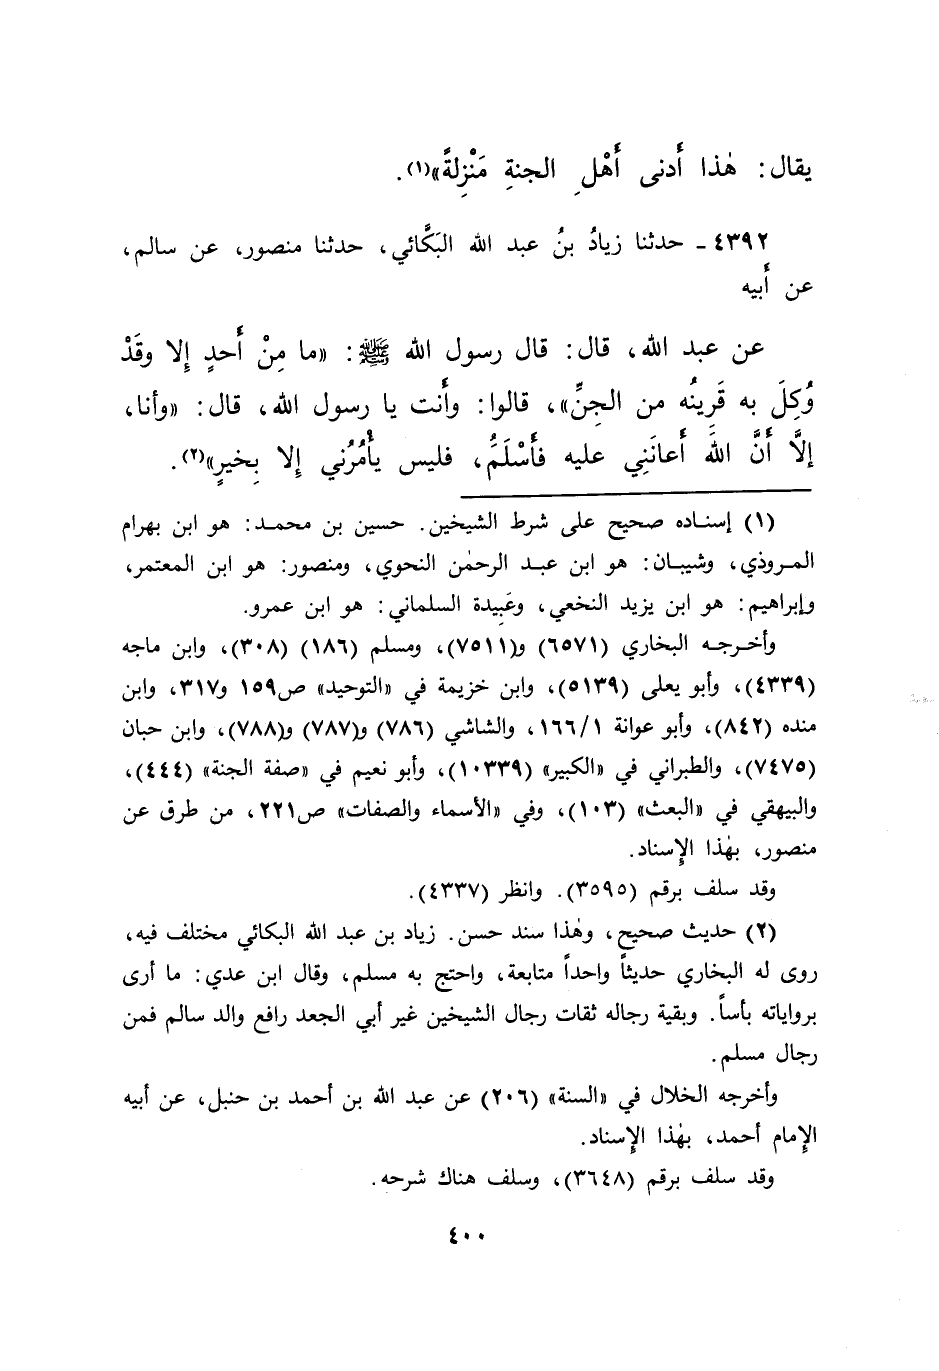 يقال: هٰذا أَدنى أَهْلِ الجنةِ مَنْزِلةً»(١).
٤٣٩٢ ـ حدثنا زيادُ بنُ عبد الله البَكَّائي، حدثنا منصور، عن سالم،
عن أَبيه
عن عبد الله، قال: قال رسول الله ﷺ: «ما مِنْ أَحدٍ إِلا وقَدْ
وُكِلَ به قَرِينُه من الجِنِّ»، قالوا: وأَنت يا رسول الله، قال: «وأنا،
إِلَّا أَنَّ اللهَ أَعانَنِي عليه فأَسْلَمُ، فليس يأْمُرُني إِلا بِخيرٍ»(٢).
(١) إسناده صحيح على شرط الشيخين. حسين بن محمد: هو ابن بهرام
المروذي، وشيبان: هو ابن عبد الرحمٰن النحوي، ومنصور: هو ابن المعتمر،
وإبراهيم: هو ابن يزيد النخعي، وعَبِيدة السلماني: هو ابن عمرو.
وأخرجه البخاري (٦٥٧١) و(٧٥١١)، ومسلم (١٨٦) (٣٠٨)، وابن ماجه
(٤٣٣٩)، وأبو يعلى (٥١٣٩)، وابن خزيمة في «التوحيد» ص١٥٩ و٣١٧، وابن
منده (٨٤٢)، وأبو عوانة ١٦٦/١، والشاشي (٧٨٦) و(٧٨٧) و(٧٨٨)، وابن حبان
(٧٤٧٥)، والطبراني في «الكبير» (١٠٣٣٩)، وأبو نعيم في «صفة الجنة» (٤٤٤)،
والبيهقي في «البعث» (١٠٣)، وفي «الأسماء والصفات» ص٢٢١، من طرق عن
منصور، بهٰذا الإِسناد.
وقد سلف برقم (٣٥٩٥). وانظر (٤٣٣٧).
(٢) حديث صحيح، وهٰذا سند حسن. زياد بن عبد الله البكائي مختلف فيه،
روى له البخاري حديثاً واحداً متابعة، واحتج به مسلم، وقال ابن عدي: ما أرى
برواياته بأساً. وبقية رجاله ثقات رجال الشيخين غير أبي الجعد رافع والد سالم فمن
رجال مسلم.
وأخرجه الخلال في «السنة» (٢٠٦) عن عبد الله بن أحمد بن حنبل، عن أبيه
الإِمام أحمد، بهٰذا الإِسناد.
وقد سلف برقم (٣٦٤٨)، وسلف هناك شرحه.
٤٠٠